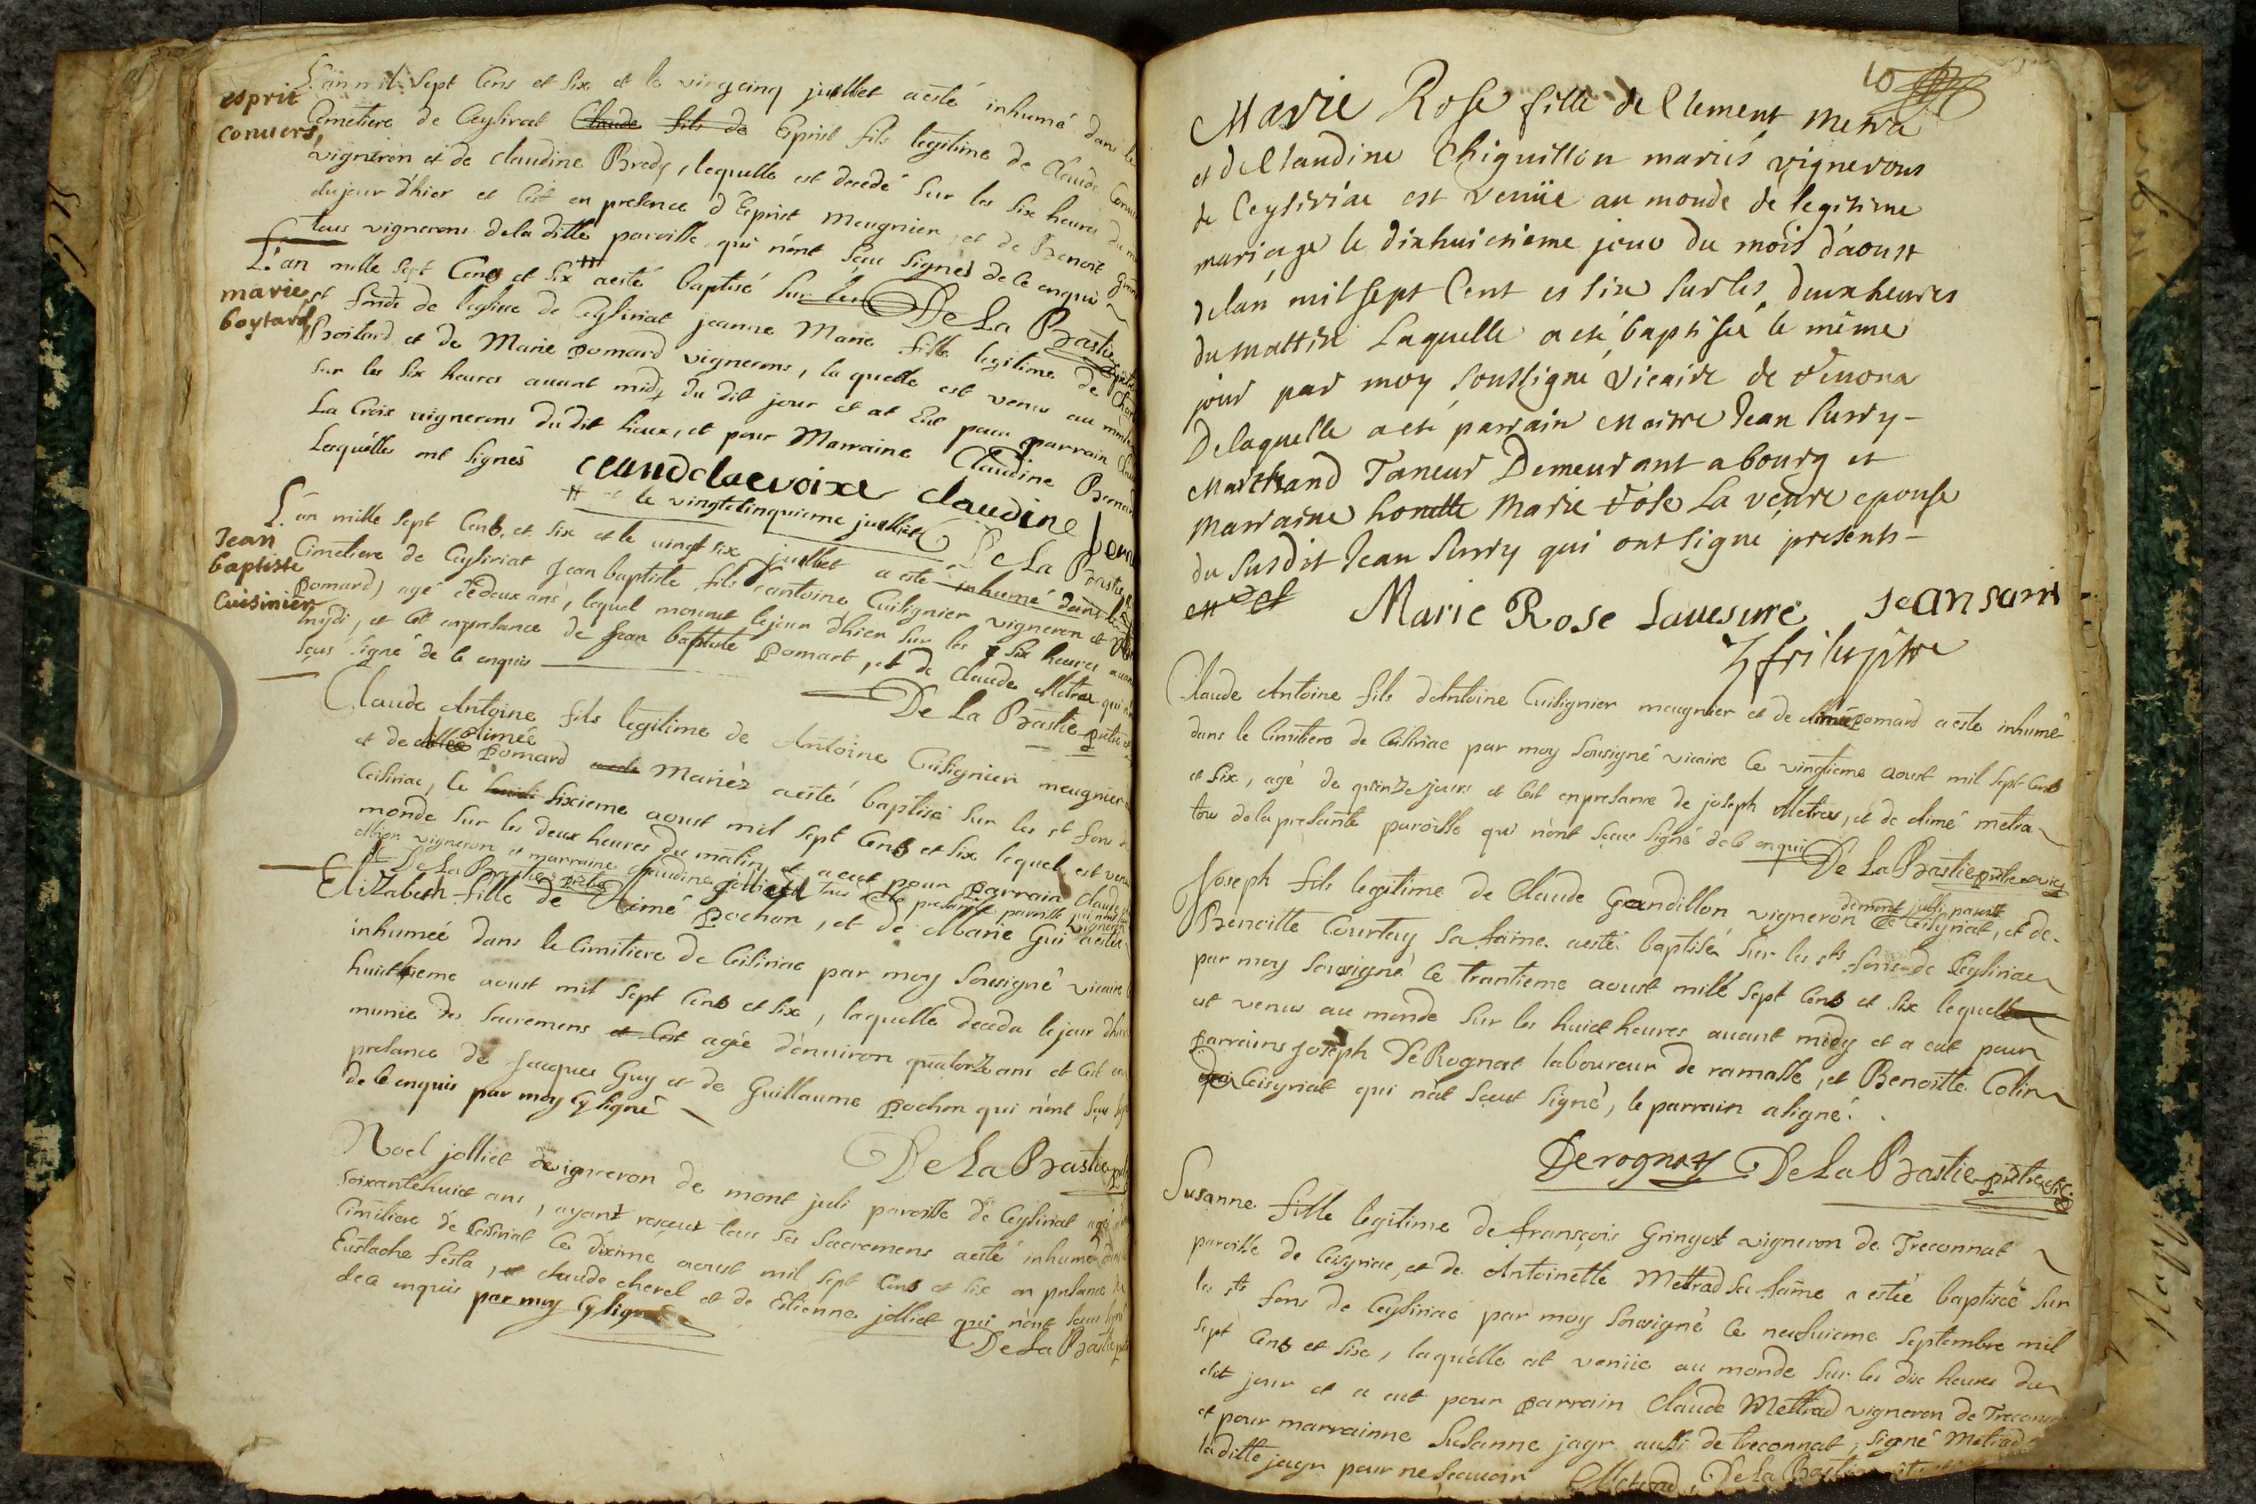 esprit
conuers,
L'an mil Sept Cens et Six et le vingcinq juillet aesté inhumé dans le
Cimetiere de Ceysiriat Claude fils de Esprit fils legitime de Claude
vigneron et de claudine Brody, lequelle est decedé Sur les Six heures du
du jour d'hier et C'est en presence d'Esprit Meugnier, et de Benoit
tous vignerons de la ditte paroisse qui n'ont Sceu Signer de ce enquis
De La Bastie
marie
boytard
L'an mille Sept Cens et Six # aesté baptisé Sur les
st fonds de l'eglise de Ceysiriat jeanne Marie fille legitime de
Boitard et de Marie pomard vignerons, la quelle est venu au monde
Sur les Six heures auant midy du dit jour et at Eut pour parrain
La Croix vignerons du dit Lieux, et pour Marraine Claudine
Lesquelles ont Signés
claudelacroixe claudine
# et le vingtcinquieme juillet
De La Bastie
Jean
baptiste
Cuisinier
L'an mille Sept Cens, et Six et le uingt six juillet a esté inhumé dans le
Cimetiere de Ceysiriat Jean baptiste fils d'antoine Cuisignier vigneron et
pomard, agé de deux ans, lequel mourut le jour dhier Sur les Six heures auant
mydi, et C'est en presance de Jean baptiste Pomart, et de Claude Metra qui
Sçus Signé de ce enquis
De La Bastie pretre
Claude Antoine fils legitime de Antoine Cuisignier meugnier
et de Aimée Pomard Mariéz aesté baptisé Sur les st fons
Ceisiriac, Ce Sixieme aoust mil Sept Cens et Six lequel est venu
monde Sur les deux heures du matin et a eut pour parrain Claude
vigneron et marraine Claudine jolliet tous de la presante paroisse
De La Bastie pretre
Elizabeth fille de Aimé Pochon, et de Marie Gui aestée
inhumée dans le Cimitiere de Ceisiriac par moy Sousigné vicaire
huictieme aoust mil Sept Cens et Six, laquelle deceda le jour dhier
munie des Sacremens et C'est agée d'enuiron quatorze ans et C'est en
presance de Jacques Guy et de Guillaume Pochon qui n'ont Sceu
de ce enquis par moy Cy signé
De La Bastie
Noel jolliet vigneron de mont juli paroisse de Ceysiriat agé
Soixantehuict ans, ayant resceut tous Ses Sacremens aesté inhumé dans
Cimitiere de Ceisiriat Ce dixime aoust mil Sept Cens et Six en presance de
Eustache festa, et claude cherel et de Estienne jolliet qui n'ont Sceu signé
de ce enquis par moy Cy signé
De La Bastie
10
Marie Rose fille de Clement Metra
et de Claudine Chiguillon mariés vignerons
de Ceysiriac est venüe au monde de legitime
mariage le dixhuictieme jour du mois d'aoust
de lan mil sept Cent et Six Sur les deux heures
du mattin Laquelle a eté baptisée le même
jour par moy Soussigné Vicaire de
De laquelle a eté parrain Maitre Jean Surry-
Marchand Taneur Demeurant a bourg et
Marraine honette Marie Rose La veure epouse
du Susdit Jean Surry qui ont signé presents-
Marie Rose Lauesure Jean surri
Claude Antoine fils d'Antoine Cuisignier meugnier et de Aimé pomard a esté inhumé
dans le Cimitiere de Ceisiriac par moy Sousigné vicaire Ce vingtieme aoust mil Sept Cens
et Six, agé de quinze jours et C'est en presance de joseph Metras, et de Aimé metra
tous de la presante paroisse qui n'ont Sçeus Signé de ce enquis
De La Bastie pretre vic
Joseph fils legitime de Claude Gandillon vigneron de mont julli paroisse de Ceisyriat, et de
Benoitte Courtuy Sa fame aesté baptisé Sur les sts fons de Ceysiriac
par moy Sousigné Ce trantieme aoust mille Sept Cens et Six lequel
est venus au monde Sur les huict heures auant midy et a eut pour
parrains joseph DeRognat laboureur de ramasse, et Benoitte Colin
Ceisyriat qui n'at Sceut Signé, le parrain a signé.
Derognaz De La Bastie pretre vic
Susanne fille legitime de françois Gringot vigneron de Treconnat
paroisse de Ceisyriac, et de Antoinette Mettrad Sa fame a estée baptisée Sur
les sts fons de Ceysiriac par moy Sousigné Ce neufuieme Septembre mil
Sept Cens et Six, laquelle est venüe au monde Sur les dix heures du
dit jour et a eut pour parrain Claude Mettrad vigneron de
et pour marrainne Susanne jayr aussi de treconnat, Signé Metrad
la ditte jayr pour ne Sçauoir Metrad, De La Bastie